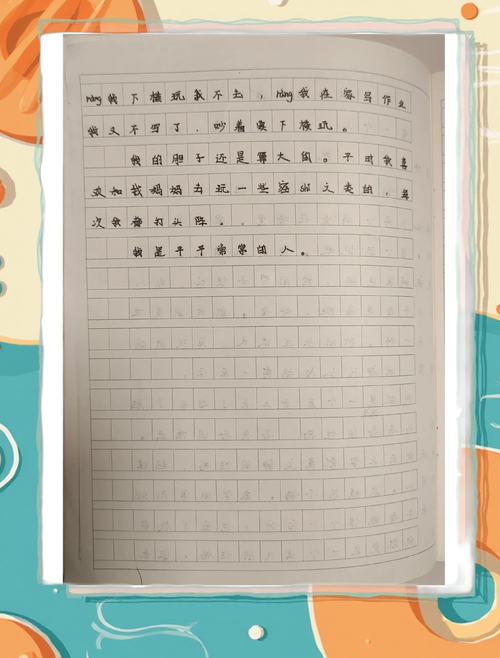 ràng我下楼玩我不去，ràng我在家写作业
我又不写了，吵着要下楼玩。
我的胆子还是蛮大的。平时我喜
欢和我妈妈去玩一些密shì之类的，每
次我都打头阵。
我是平平常常的人。